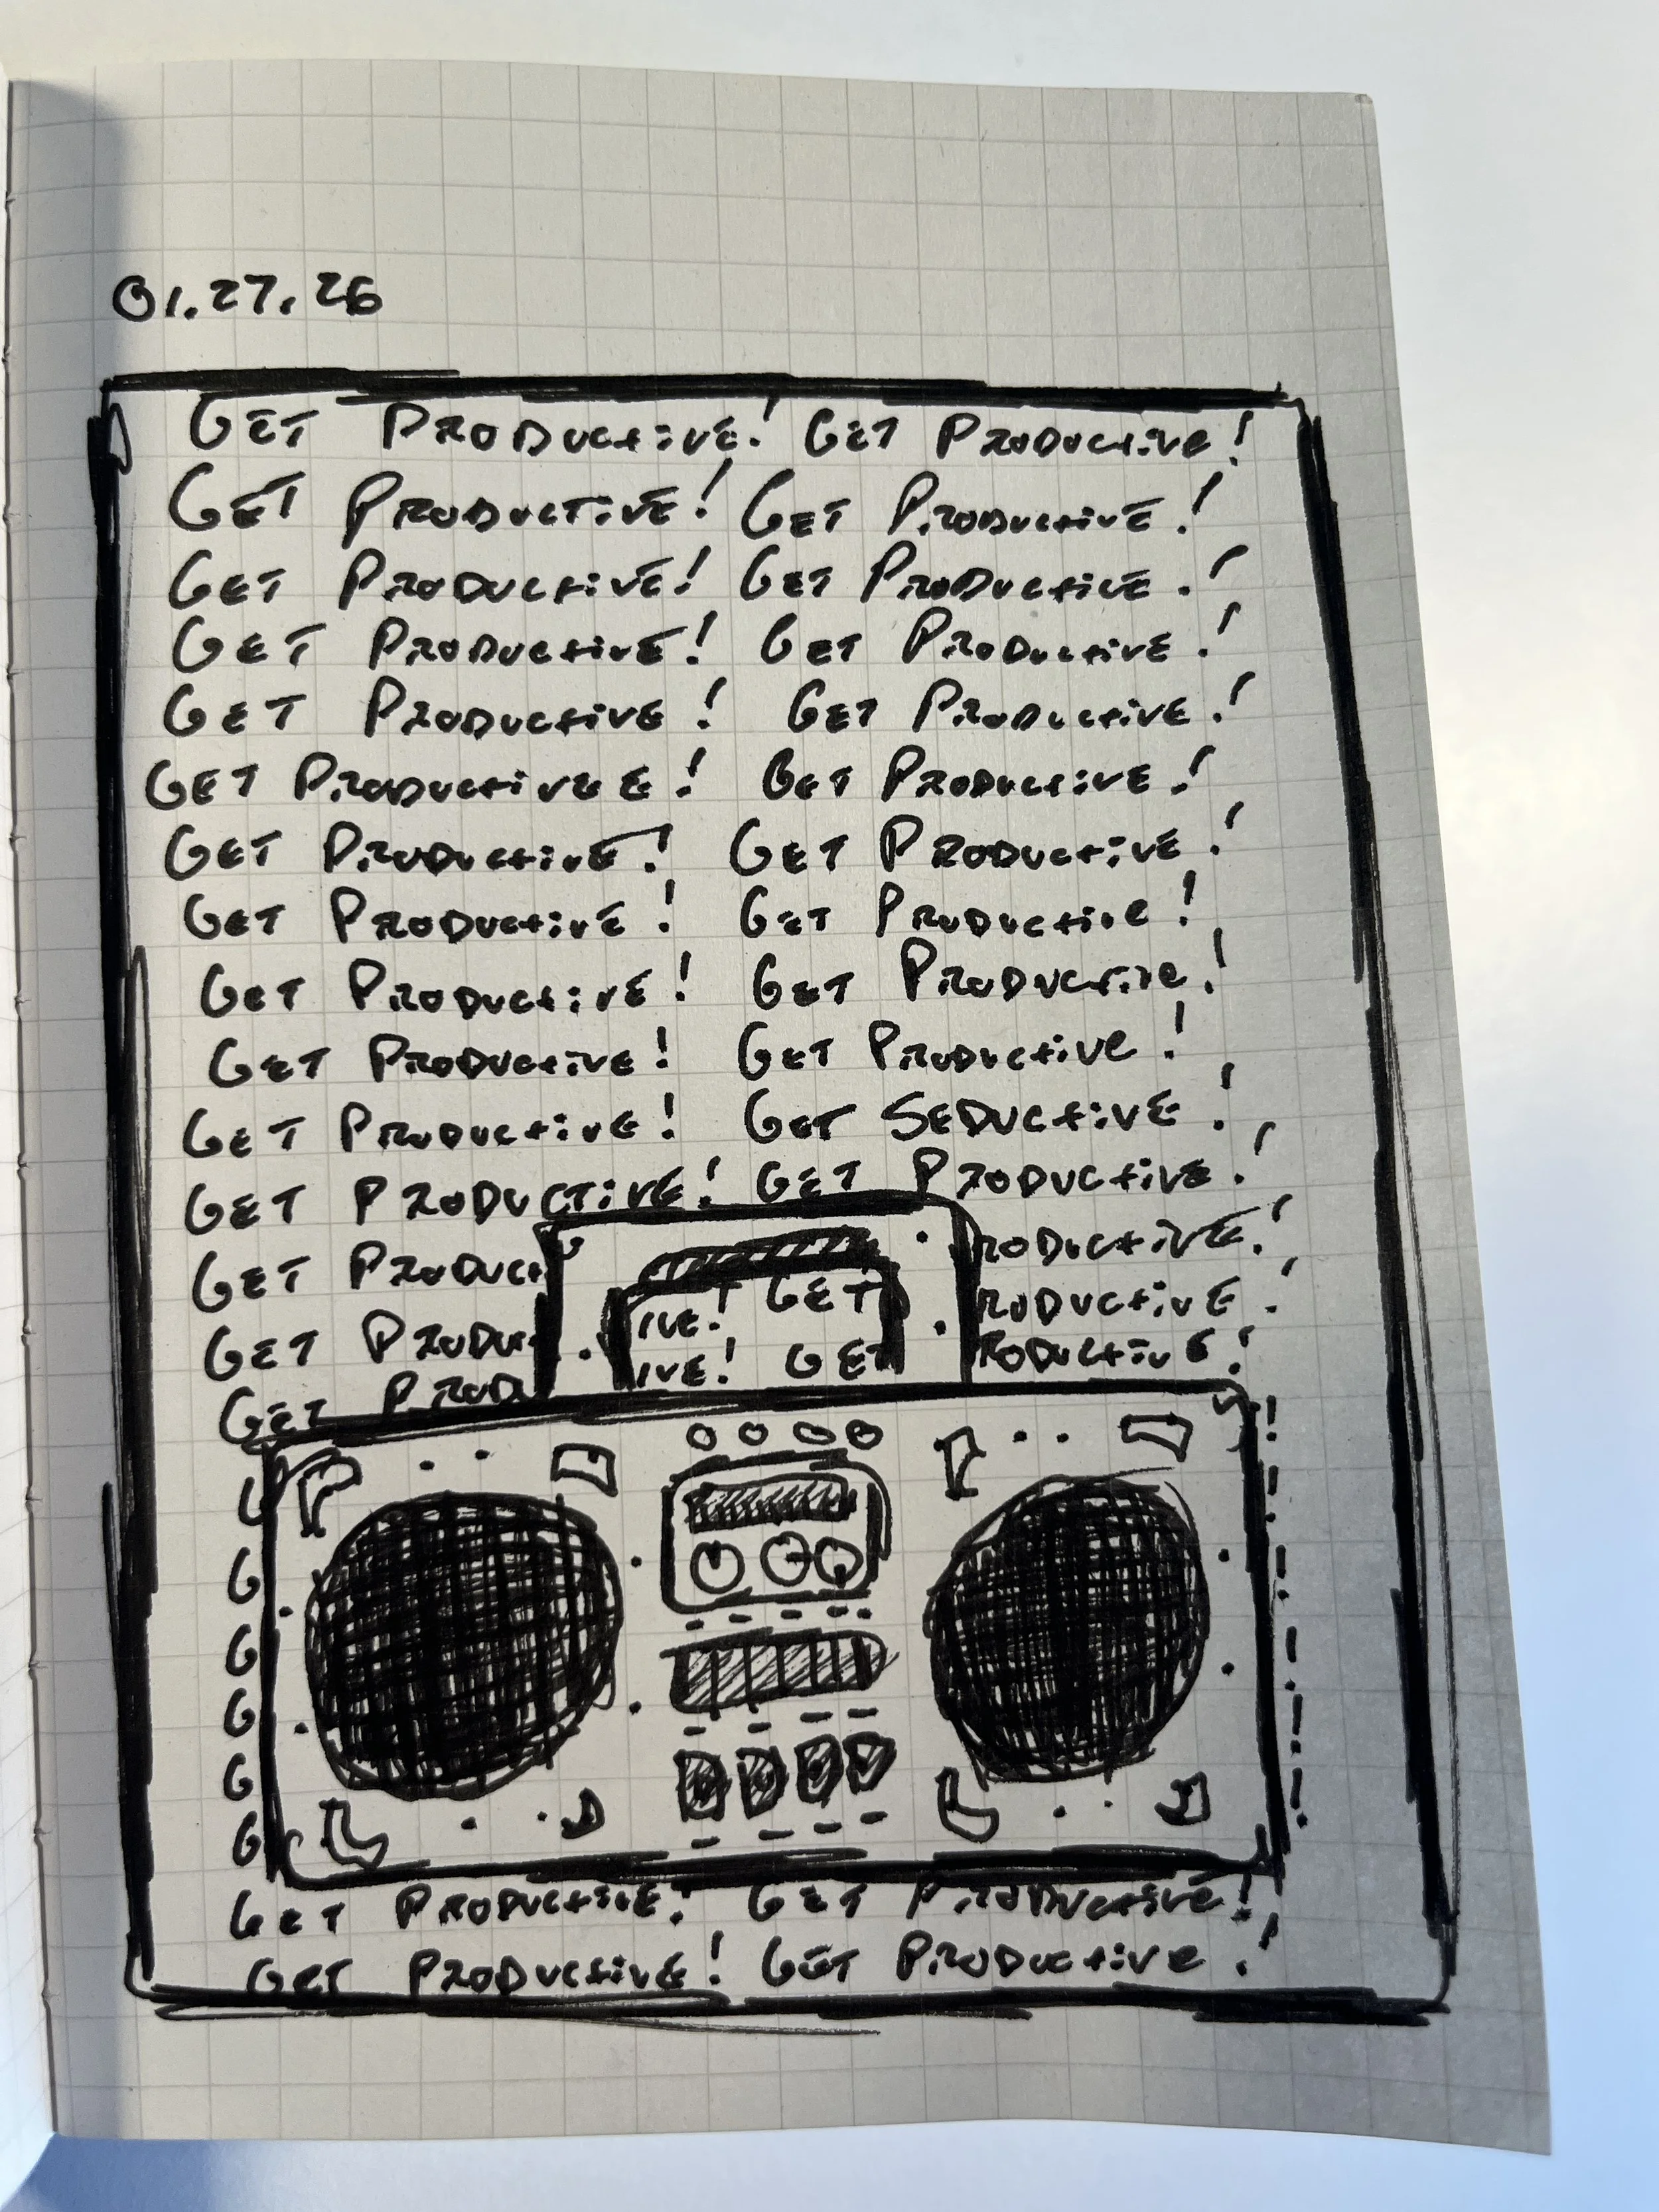 01.27.26
GET PRODUCTIVE! GET PRODUCTIVE!
GET PRODUCTIVE! GET PRODUCTIVE!
GET PRODUCTIVE! GET PRODUCTIVE!
GET PRODUCTIVE! GET PRODUCTIVE!
GET PRODUCTIVE! GET PRODUCTIVE!
GET PRODUCTIVEE! GET PRODUCTIVE!
GET PRODUCTIVE! GET PRODUCTIVE!
GET PRODUCTIVE! GET PRODUCTIVE!
GET PRODUCTIVE! GET PRODUCTIVE!
GET PRODUCTIVE! GET PRODUCTIVE!
GET PRODUCTIVE! GET SEDUCTIVE!
GET PRODUCTIVE! GET PRODUCTIVE!
GET PRODUCT IVE! GET RODUCTIVE!
GET PRODU IVE! GET RODUCTIVE!
GET PRODU RODUCTIVE!
!
G !
G !
G !
G !
G !
G
GET PRODUCTIVE! GET PRODUCTIVE!
GET PRODUCTIVE! GET PRODUCTIVE!